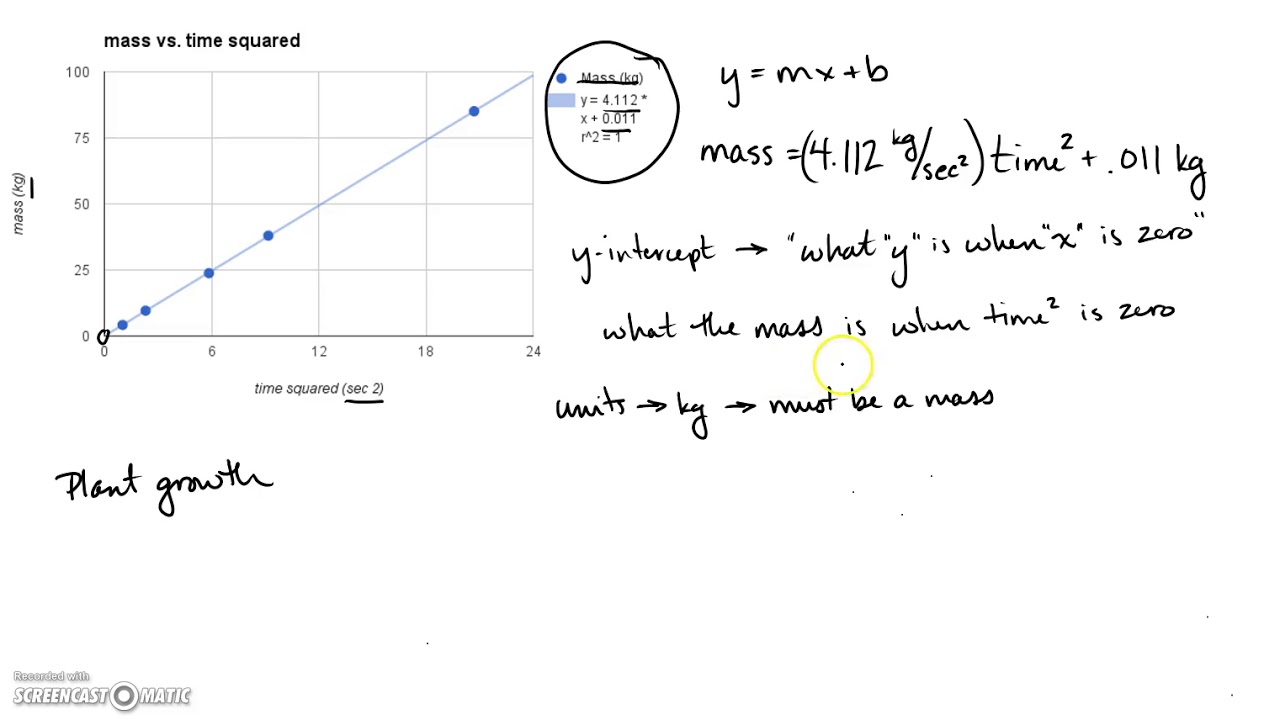 mass vs. time squared
100
75
50
25
0
0 6 12 18 24
mass (kg)
time squared (sec 2)
Mass (kg)
y = 4.112 *
x + 0.011
r^2 = 1
y = mx + b
mass = (4.112 kg/sec²) time² + .011 kg
y-intercept → "what "y" is when "x" is zero"
what the mass is when time² is zero
units → kg → must be a mass
Plant growth
Recorded with
SCREENCAST O MATIC